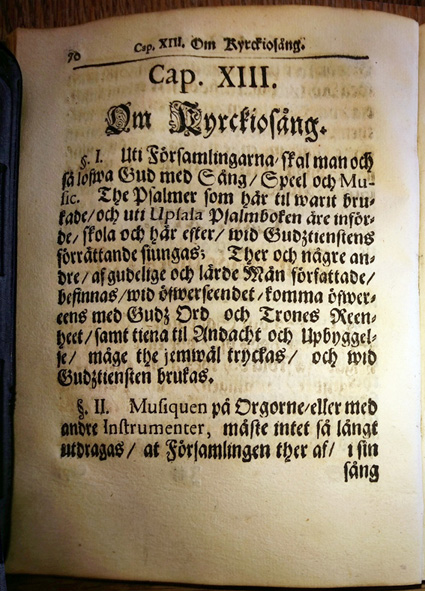 70
Cap. XIII. Om Kyrckiosång.
Cap. XIII.
Om Kyrckiosång.
§. I. Uti Församlingarna/skal man och
så lofwa Gud med Sång/Speel och Mu-
sic. The Psalmer som här til warit bru-
kade/och uti Upsala Psalmboken äre inför-
de/skola och här efter/wid Gudztienstens
förrättande siungas; Ther och några an-
dre/af gudelige och lärde Män författade/
befinnas/wid öfwerseendet/komma öfwer-
eens med Gudz Ord och Trones Reen-
heet/samt tiena til Andacht och Upbyggel-
se/ måge the jemwäl tryckas/ och wid
Gudztiensten brukas.
§. II. Musiquen på Orgorne/eller med
andre Instrumenter, måste intet så långt
utdragas/ at Församlingen ther af/ i sin
sång